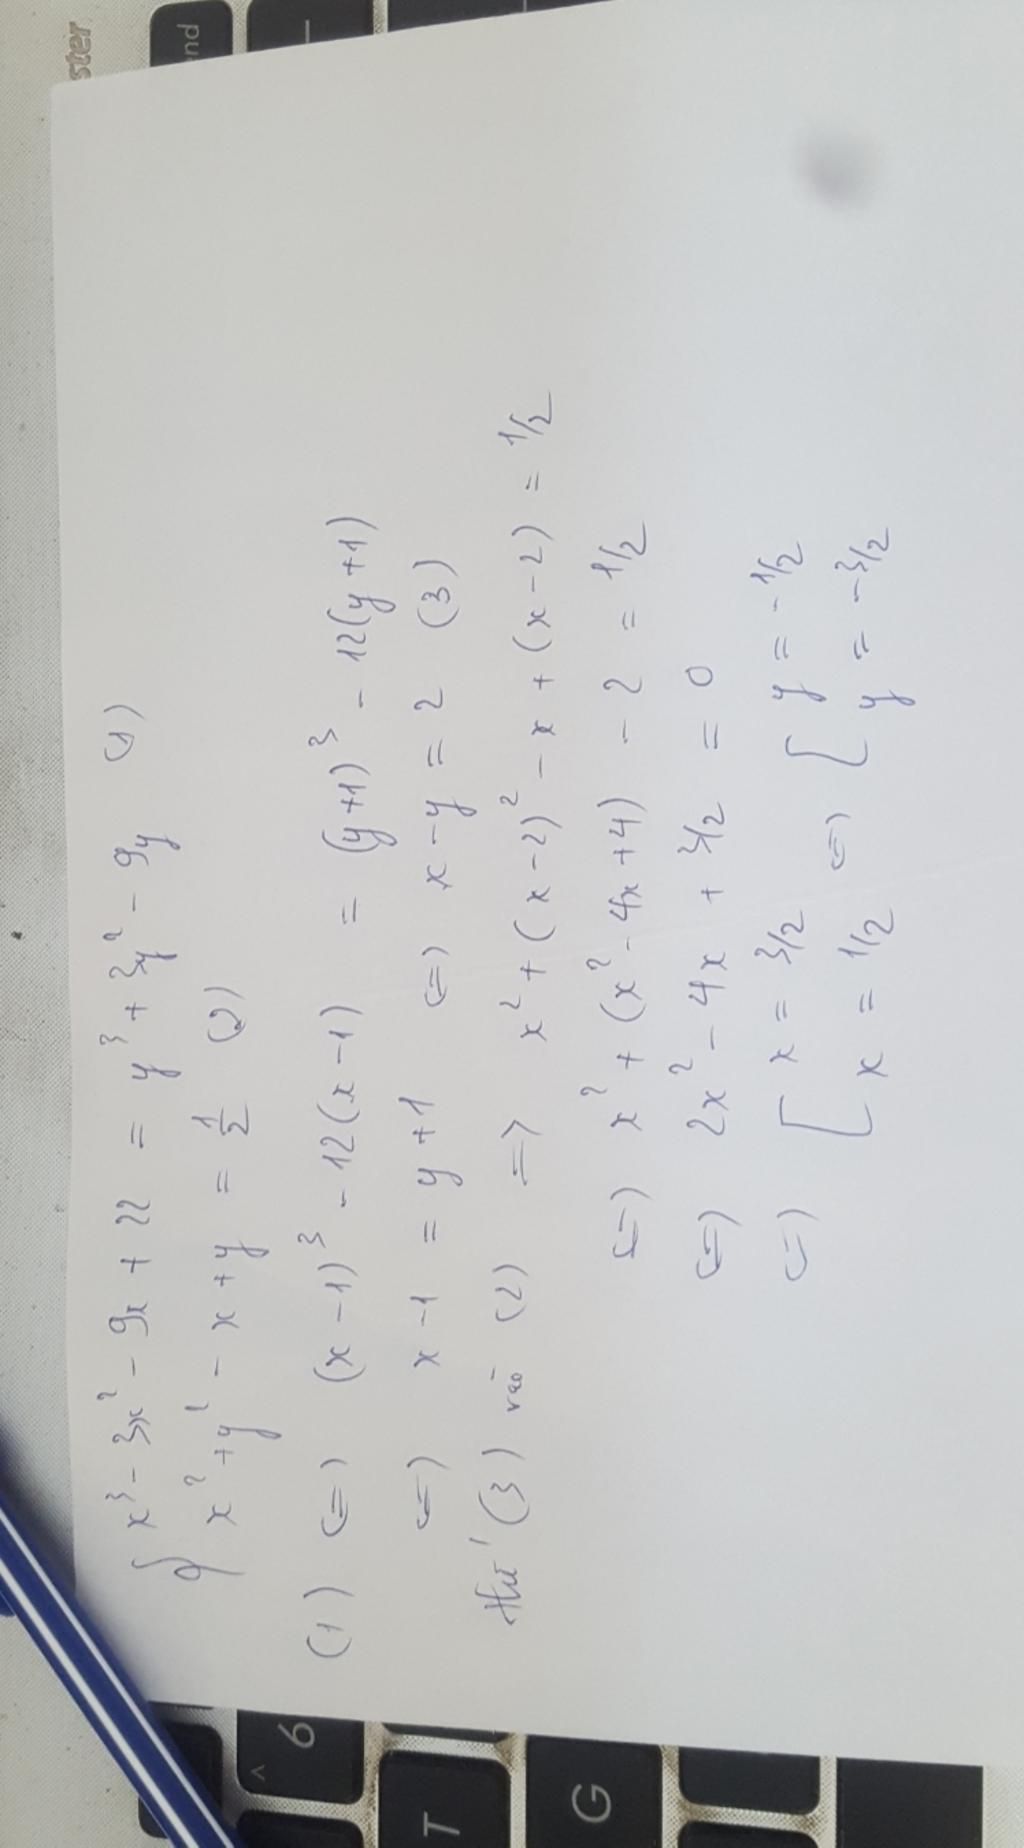 { x³ - 3x² - 9x + 22 = y³ + 3y² - 9y (1)
x² + y² - x + y = 1/2 (2)
(1) <=> (x - 1)³ - 12(x - 1) = (y + 1)³ - 12(y + 1)
<=> x - 1 = y + 1 <=> x - y = 2 (3)
(3) vào (2) => x² + (x - 2)² - x + (x - 2) = 1/2
<=> x² + (x² - 4x + 4) - 2 = 1/2
<=> 2x² - 4x + 3/2 = 0
<=> [ x = 3/2 <=> [ y = -1/2
x = 1/2 y = -3/2
ster
nd
6
^
T
G